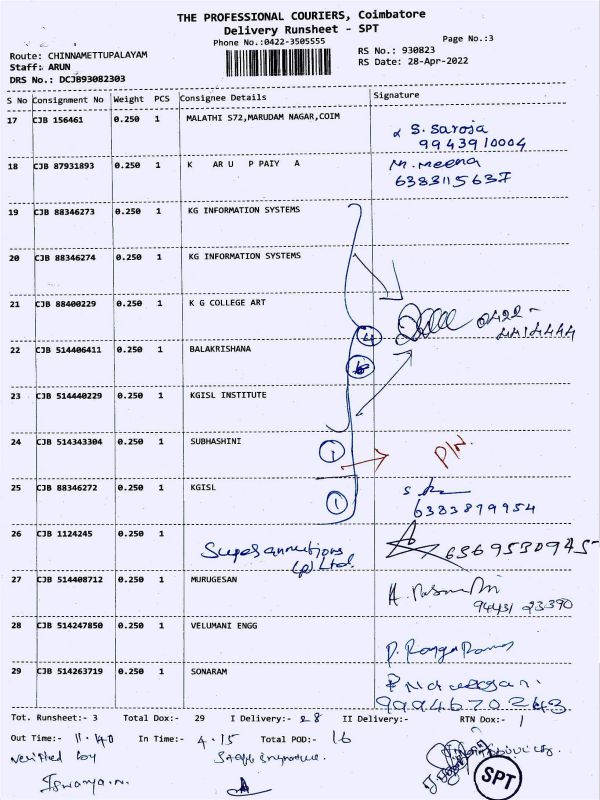 THE PROFESSIONAL COURIERS, Coimbatore
Delivery Runsheet - SPT
Phone No.:0422-3505555
Page No.:3
Route: CHINNAMETTUPALAYAM
RS No.: 930823
Staff: ARUN
RS Date: 28-Apr-2022
DRS No.: DCJB93082303
S No Consignment No Weight PCS Consignee Details Signature
17 CJB 156461 0.250 1 MALATHI S72,MARUDAM NAGAR,COIM
S. Saroja
9943910004
18 CJB 87931893 0.250 1 K AR U P PAIY A
M. Meena
6383115637
19 CJB 88346273 0.250 1 KG INFORMATION SYSTEMS
20 CJB 88346274 0.250 1 KG INFORMATION SYSTEMS
21 CJB 88400229 0.250 1 K G COLLEGE ART
0422-
4414444
22 CJB 514406411 0.250 1 BALAKRISHANA
23 CJB 514440229 0.250 1 KGISL INSTITUTE
24 CJB 514343304 0.250 1 SUBHASHINI
1
P/N.
25 CJB 88346272 0.250 1 KGISL
1
6383879954
26 CJB 1124245 0.250 1
(P) Ltd.
6369530945
27 CJB 514408712 0.250 1 MURUGESAN
94431 23390
28 CJB 514247850 0.250 1 VELUMANI ENGG
29 CJB 514263719 0.250 1 SONARAM
9994670243
Tot. Runsheet:- 3 Total Dox:- 29 I Delivery:- 28 II Delivery:- RTN Dox:- 1
Out Time:- 11.40 In Time:- 4.15 Total POD:- 16
Verified by Staff signature.
SPT